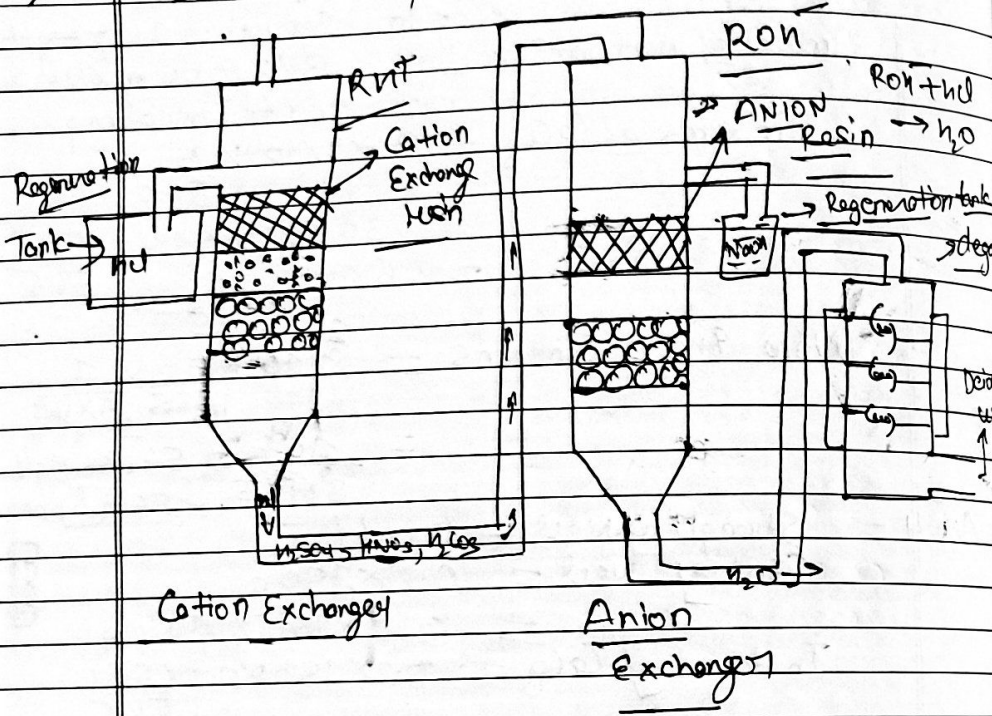 RH+
Cation
Exchange
resin
Regeneration
Tank
Hcl
H2SO4, HNO3, H2CO3
Cation Exchanger
ROH
ROH + Hcl
→ H2O
ANION
Resin
Regeneration tank
NaOH
H2O
Anion
Exchanger